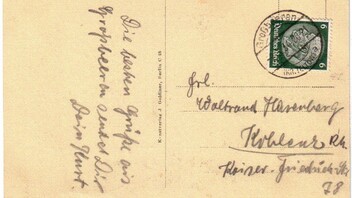 Die besten Grüße aus
Großbeeren sendet Dir
Dein Kurt
6
Deutsches Reich
6
Frl.
Waltraud Hasenberg
Koblenz Rh.
Kaiser-Friedrich Str
78